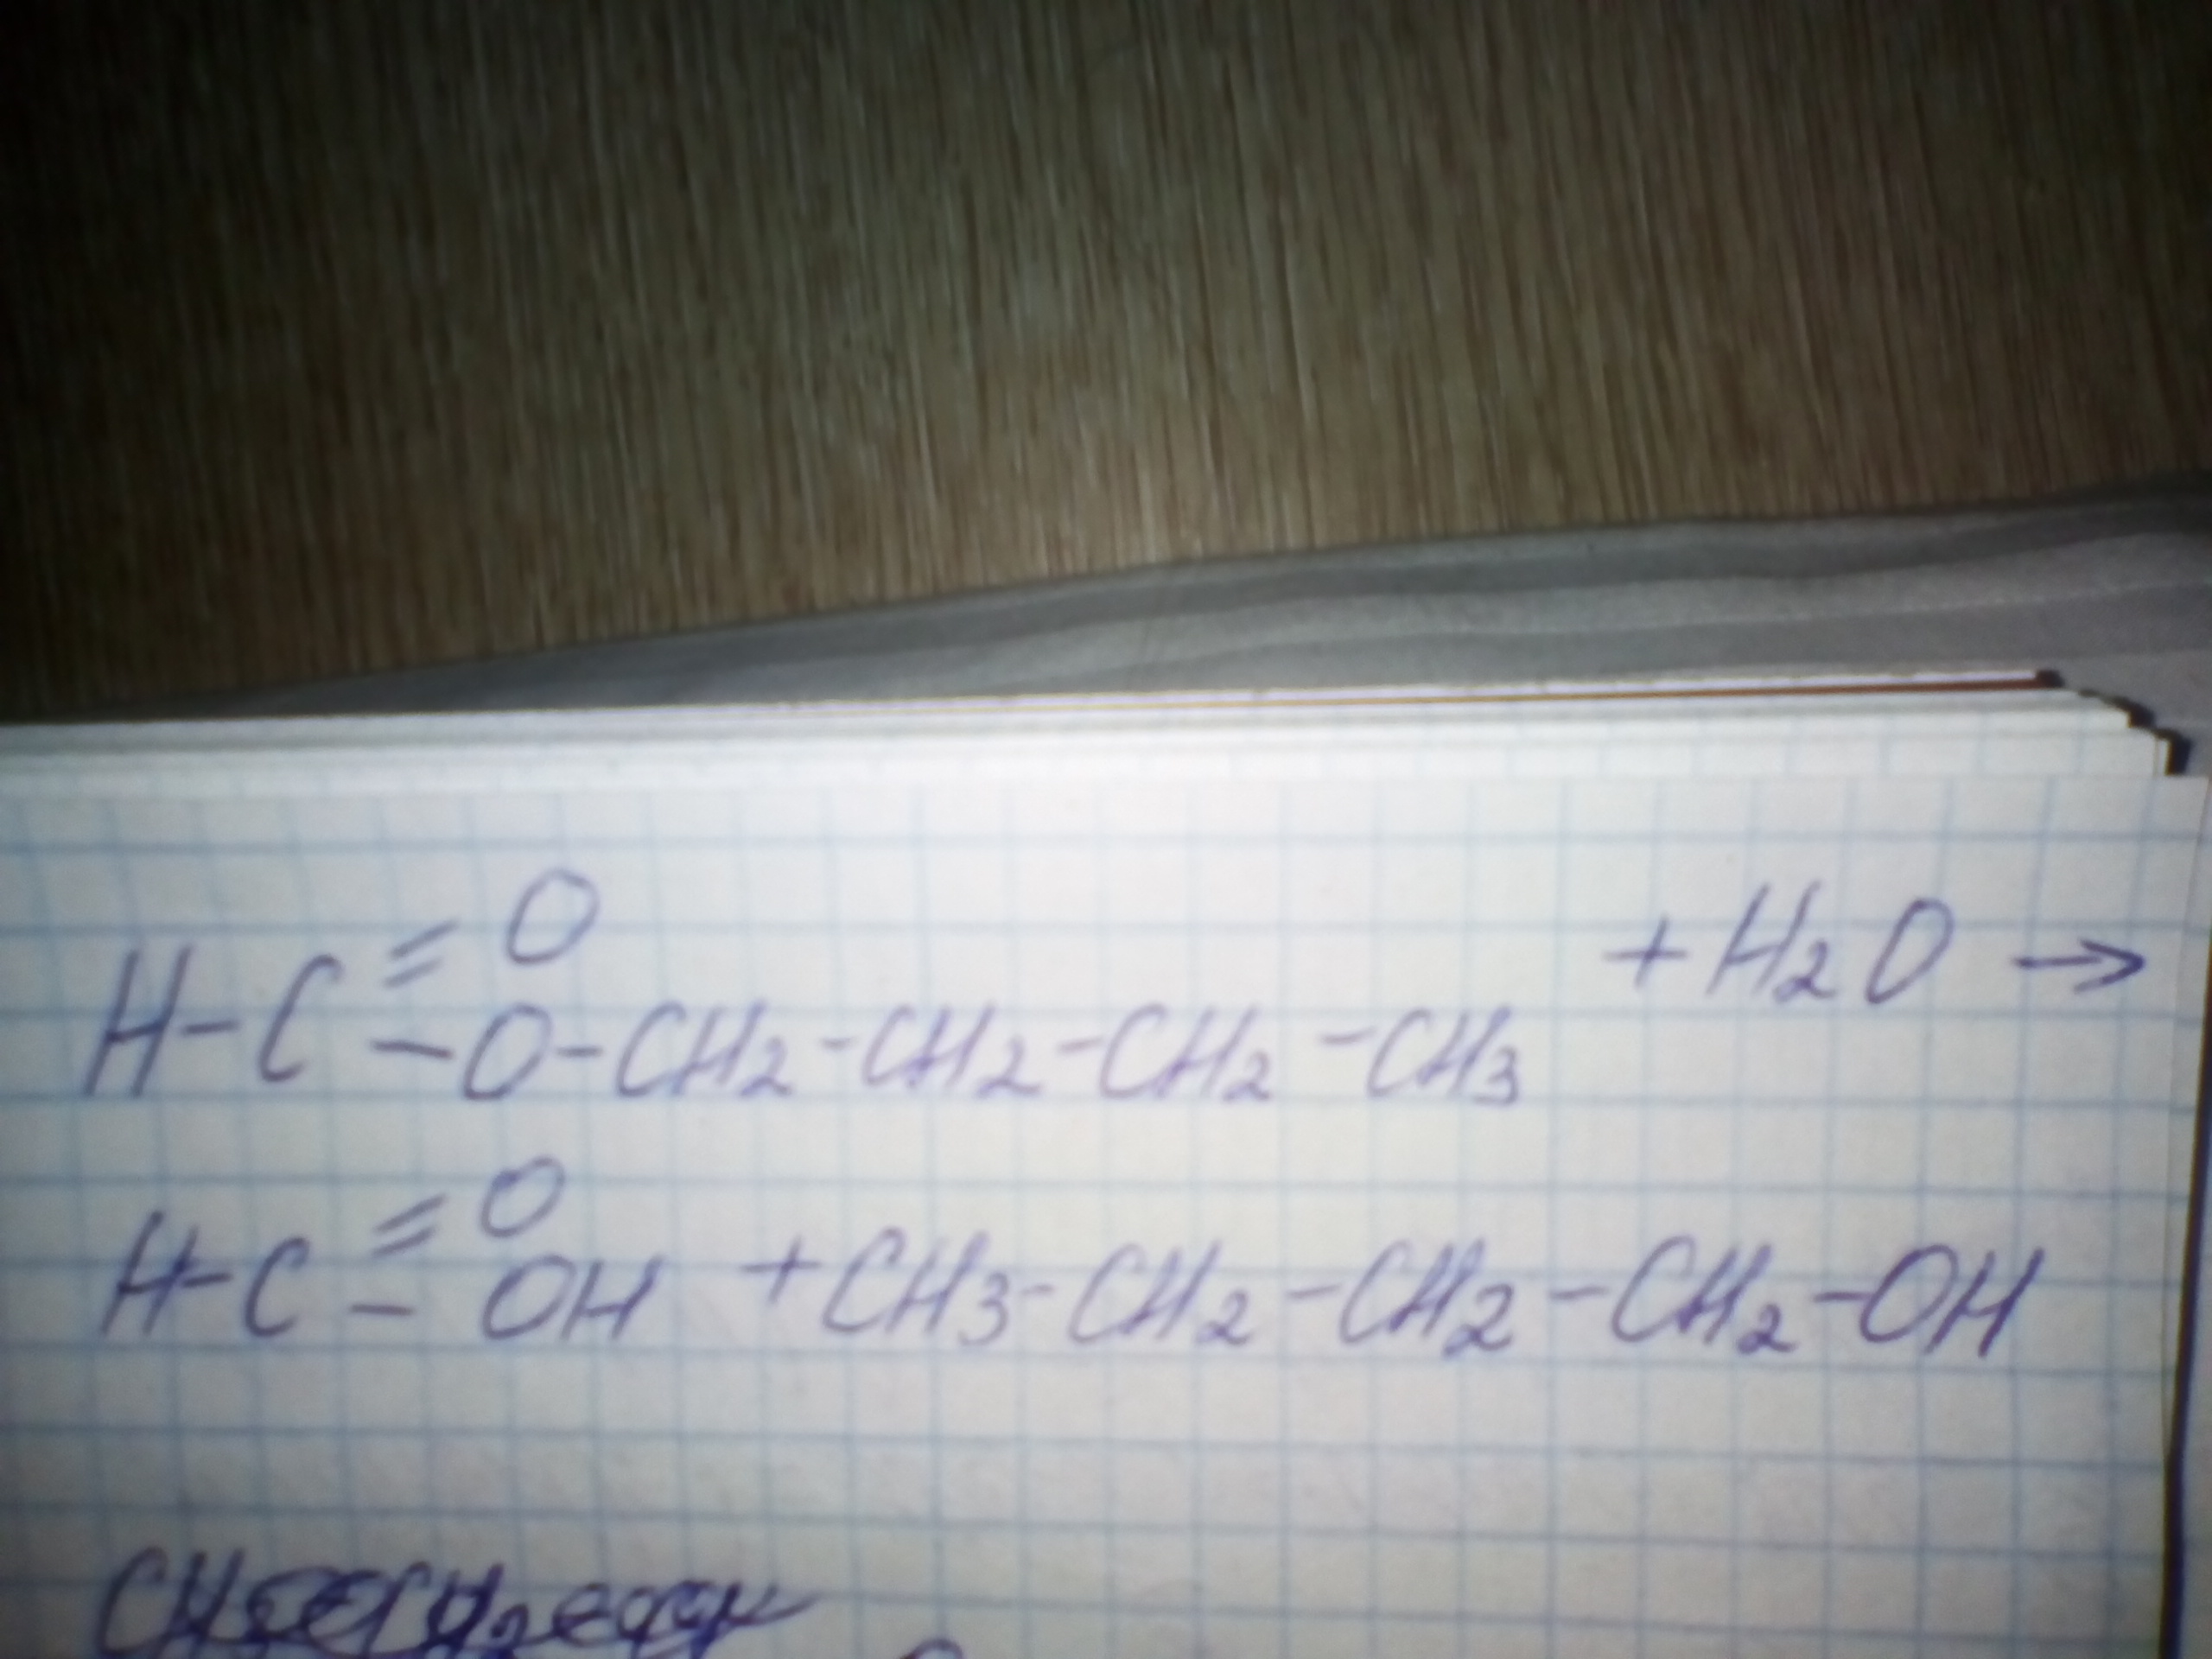 H-C=O
-O-CH2-CH2-CH2-CH3 +H2O →
H-C=O
-OH +CH3-CH2-CH2-CH2-OH